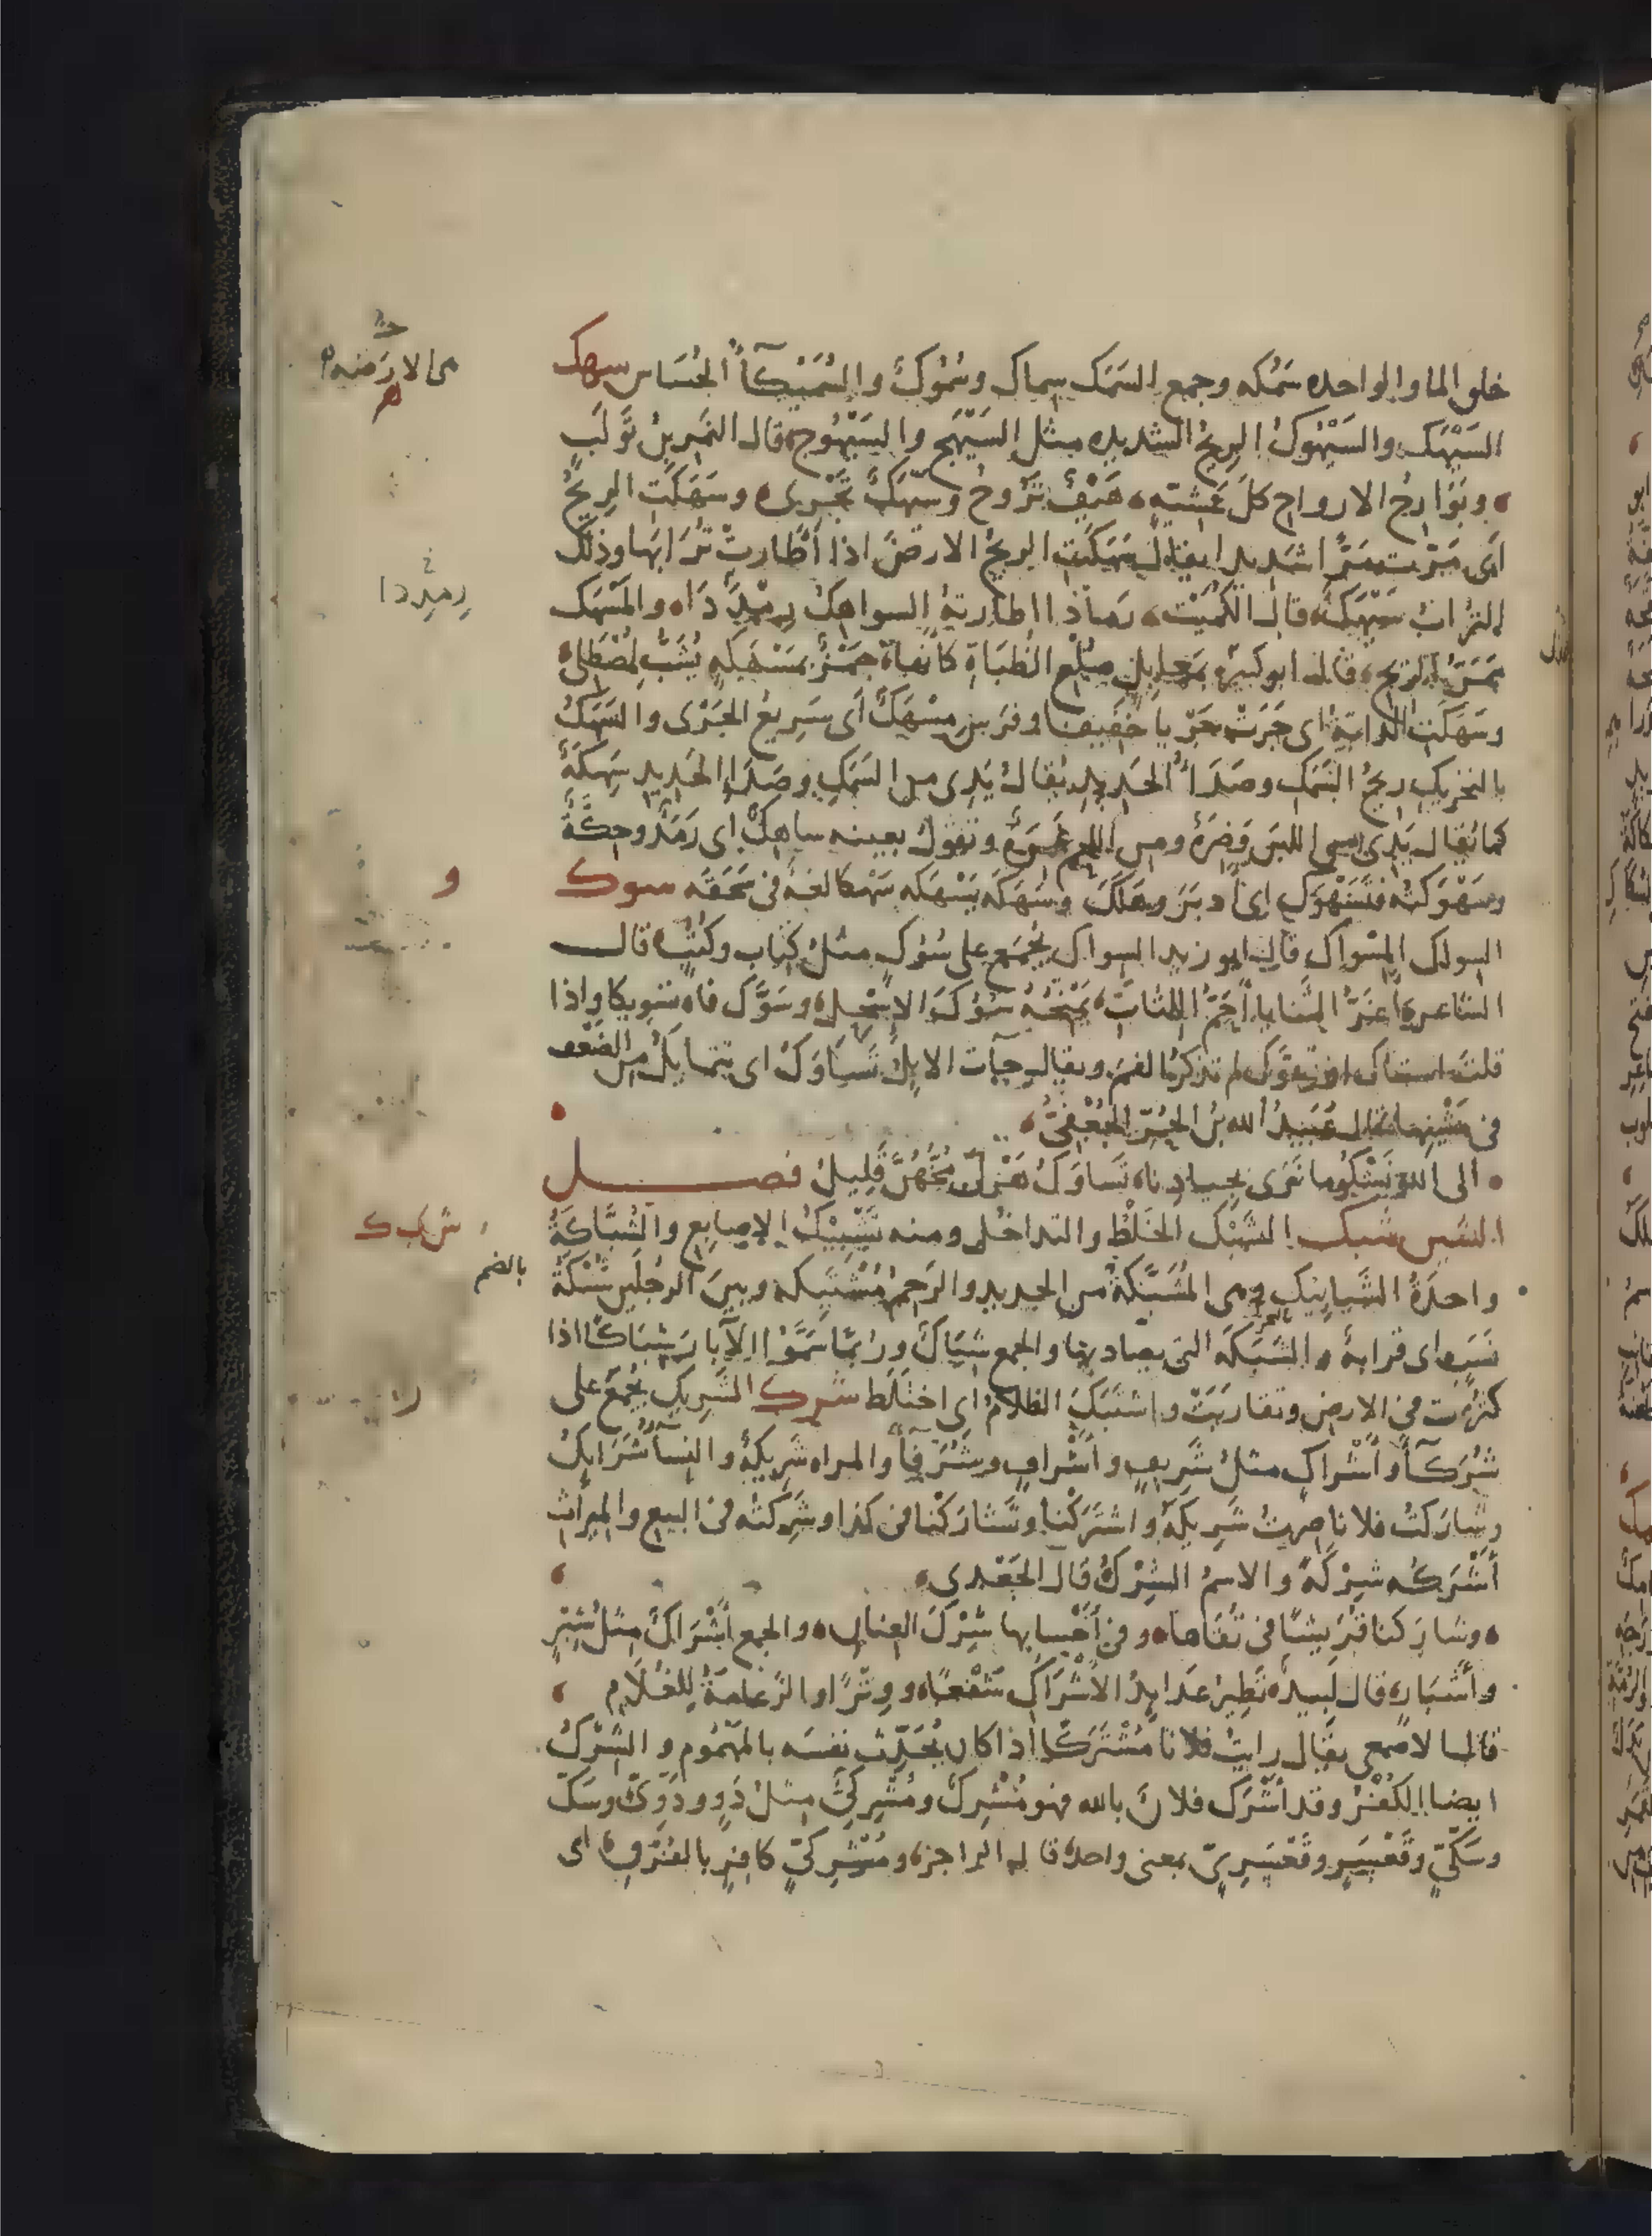 خلق الما والواحده سَمَكه وجمع السَمَك سِماك وسُمُوكٌ والسُمَيْكآءُ الحُسَاس سهك
السَيْهَك والسَيْهُوكُ الرِيحُ الشديده مثل السَيْهَج والسَيْهُوج قال النَمِر بنُ تَوْلَب
وبَوَارِحُ الارواح كلَّ عَشيّةٍ هَيْفٌ تَرُوحُ وسَيْهَكٌ تَجْرِى وسَهَكَت الرِيحُ
اَى مَرَّت مَرًّا شديدا يقال سَهَكَتِ الريحُ الارضَ اذا أطارتْ تُرَابَها وذلك
التراب سَيْهَكٌ قال الكُمَيْت رمادا اطارتهُ السواهِكُ رِمْدَدَا والمَسْهَك
مَمَرُّ الريح قال ابو كبير بمَعابِلٍ صُلْعِ الظُبَاةِ كانها جَمْرٌ بمَسْهَكةٍ يُشَبُّ لِمُصْطَلِى
وسَهَكَت الدابةُ اى جَرَتْ جَرْيا خفيفا وفَرَس مِسْهَكٌ أى سَرِيعُ الجَرْى والسَهَكُ
بالتحريك ريحُ السَمَك وصَدَأُ الحديد يقالُ يَدِى من السَمَكِ وصَدَإ الحَدِيدِ سَهِكَةٌ
كما يُقال يَدِى من اللبَن وَضِرَةٌ ومن اللحم غَمِرَةٌ وتقول بعينه ساهِكٌ اى رَمَدٌ وحِكّةٌ
وسَهْوَكتُه فتَسَهْوَك اى ادبَرَ وهَلَكَ وسَهَكَه يَسْهَكه سَهْكا لغةٌ فى سَحَقَه سوك
السواك المِسْواك قال ابو زيد السواك يُجْمَع على سُوُكٍ مثلُ كِتاب وكُتُب قال
الشاعر أغَرُّ الثَنايا أحَمُّ اللِثات تَمْنَحُهُ سُوُكَ الإسْحِل وسَوَّك فاه تسويكا واذا
قلتَ استاك او تَسَوَّك لم تذكر الفم ويقال جآت الابِلُ تَسَاوَكُ اى تتمايَلُ من الضعف
فى مَشْيِها قال عُبَيدُ الله بنُ الحُرّ الجُعْفىُّ
الى الله نَشْكُو ما نَرَى بجِيادِنا تَساوَكُ هَزْلَى مُخُّهُنَّ قَلِيلُ فصل
الشين شبك الشَبْك الخَلْط والتداخل ومنه تَشْبِيْكُ الاصابِع والشُبَّاكَةُ
واحدَةُ الشَبابِيكِ وهى المُشَبَّكَةُ من الحديد والرَحِمُ مُشْتَبِكه وبينَ الرجُلَين شُبْكَةُ
نَسَب اى قرابةٌ والشَبَكَه التى يصاد بها والجمع شِبَاكٌ ورُبَّما سَمَّوُا الآبارَ شِبَاكًا اذا
كثُرت فى الارض وتقاربَتْ واشتَبَك الظلامُ اى اختَلَط شرك الشَرِيك يُجْمَعُ على
شُرَكآءَ وأشْراكٍ مثلُ شَرِيفٍ وأشْرافٍ وشُرَفآءَ والمراه شَرِيكةٌ والنسآءُ شَرَايِكُ
وشارَكتُ فلانا صِرتُ شَرِيكَهُ واشتَرَكْنا وتَشارَكْنا فى كذا وشَرِكتُه فى البيع والميراث
أشْرَكُه شِرْكَةً والاسمُ الشِرْكُ قال الجَعْدى
وشارَكنا قُرَيشًا فى تُقَاها وفى أحْسابِها شِرْكَ العِنانِ والجمع أشْرَاكٌ مثلُ شِبْرٍ
وأشْبَار قال لَبيد تَطِيرُ عَدايِدُ الأشْرَاكِ شَفْعًا ووِتْرًا والزَعامَةُ لِلغُلَام
قال الاصمعى يقال رايتُ فلانا مُشْتَرَكًا اذا كان يُحَدِّث نفسَه بالمَهْمُوم والشِرْكُ
ايضا الكُفْرُ وقد أشْرَك فلانٌ بالله فهو مُشْرِكٌ ومُشْرِكىٌّ مثلُ دَوٍ ودَوِّىٌّ وسَكّ
وسَكِّىّ وقَعْسَرٍ وقَعْسَرِىّ بمعنى واحد قال الراجز ومُشْرِكىٍّ كافِرٍ بالفُرْقِ اى
رِمدِدا
و
ش ب ك
بالضم